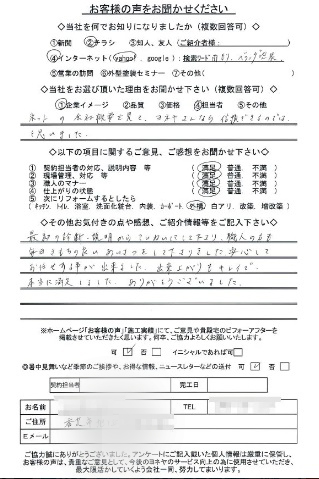 お客様の声をお聞かせください
◇当社を何でお知りになりましたか（複数回答可）◇
①新聞 ②チラシ ③知人、友人（ご紹介者様： ）
④インターネット（yahoo!、google）：検索ワード
⑤営業の訪問 ⑥外壁塗装セミナー ⑦その他（ ）
◇当社をお選び頂いた理由をお聞かせ下さい（複数回答可）◇
①企業イメージ ②品質 ③価格 ④担当者 ⑤その他
思いました。
◇以下の項目に関するご意見、ご感想をお聞かせ下さい◇
① 契約担当者の対応、説明内容 等 （ 満足 普通 不満 ）
② 現場管理、対応 等 （ 満足 普通 不満 ）
③ 職人のマナー （ 満足 普通 不満 ）
④ 仕上がりの状態 （ 満足 普通 不満 ）
⑤ 次にリフォームするとしたら
（ キッチン、トイレ、浴室、洗面化粧台、内装、カーポート、外構、白アリ、改築、増改築 ）
◇その他お気付きの点や感想、ご紹介情報等をご記入下さい◇
最初の診断、説明から
お任せする事が出来ました。出来上がりもキレイで、
本当に満足しました。ありがとうございました。
※ホームページ「お客様の声」「施工実績」にて、ご意見や貴殿宅のビフォーアフターを
掲載させていただきたい思います。何卒、ご協力よろしくお願いいたします。
可 否 イニシャルであれば可
◎暑中見舞いなど季節のご挨拶や、お得な情報、ニュースレターなどの送付 可 否
契約担当者 完工日
お名前 TEL
ご住所
Eメール
ご協力誠にありがとうございました。アンケートにご記入戴いた個人情報は厳重に保管し、
お客様の声は、貴重なご意見として、今後のヨネヤのサービス向上の為に使用させていただき、
最大限活かしていくよう会社一同、努力してまいります。